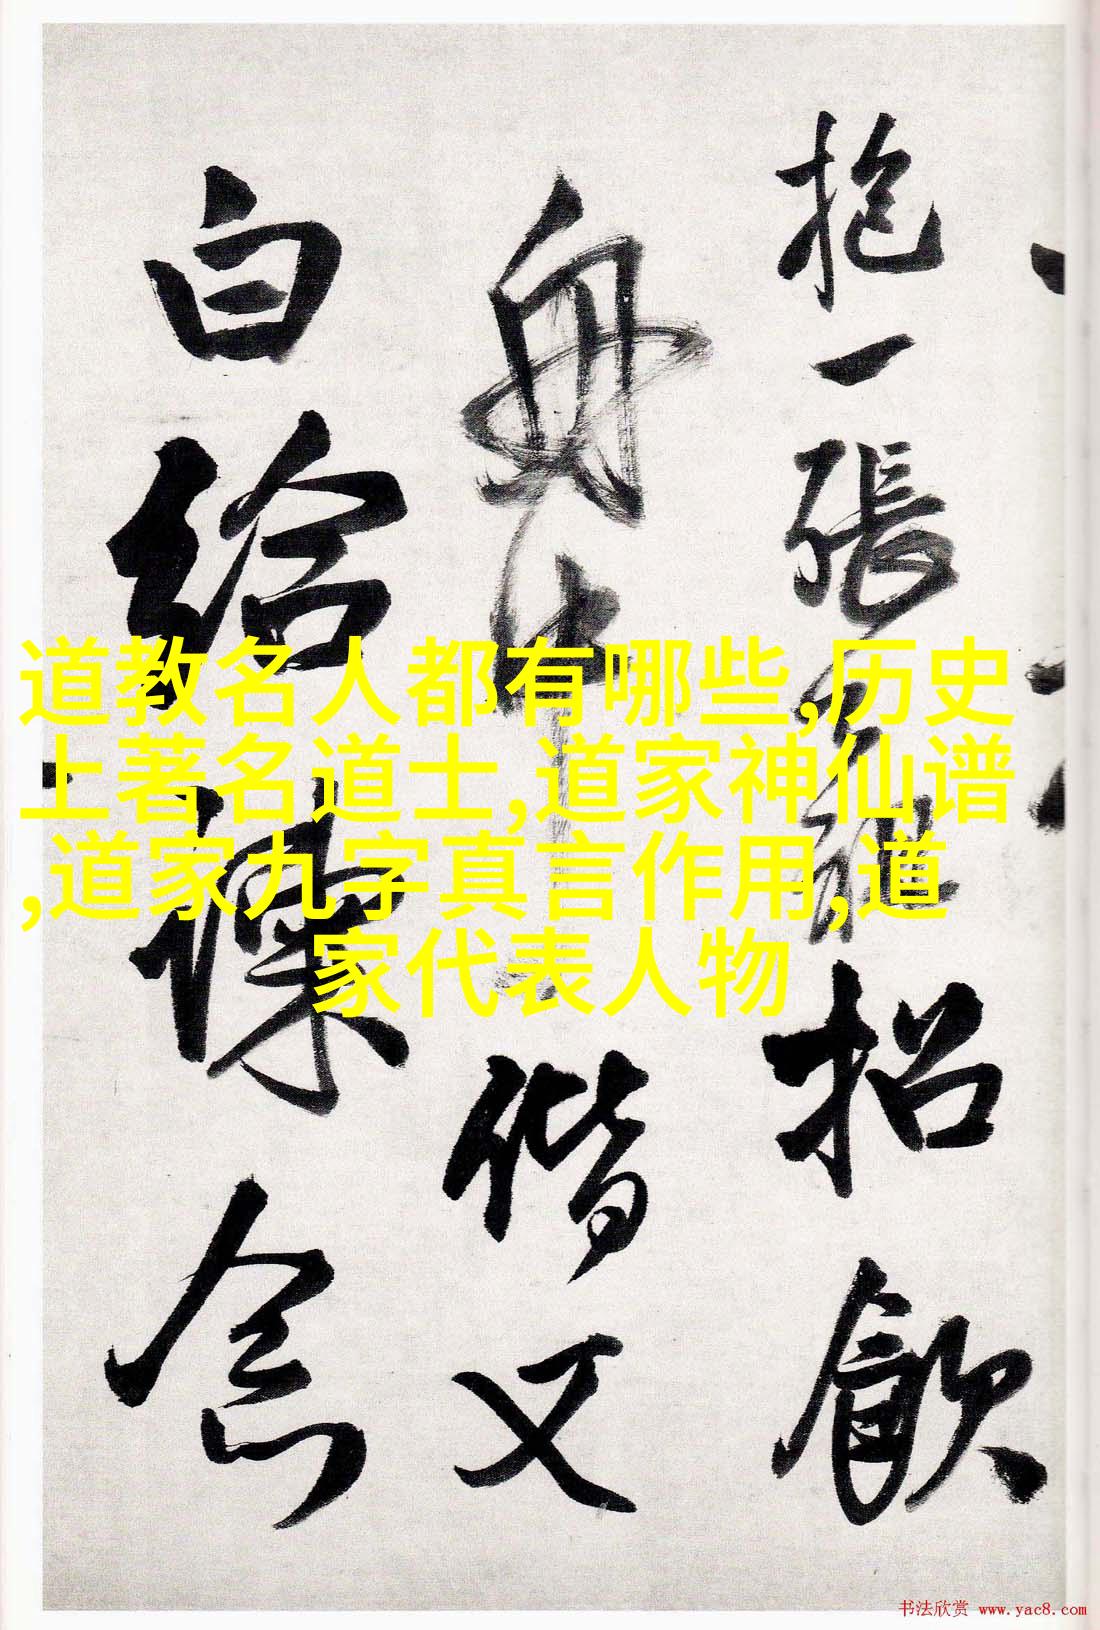 抱一張招飲
舟中偕又
白給諫念
道教名人都有哪些,历史
上著名道士,道家神仙谱
,道家九字真言作用,道
家代表人物
书法欣赏 www.yac8.com